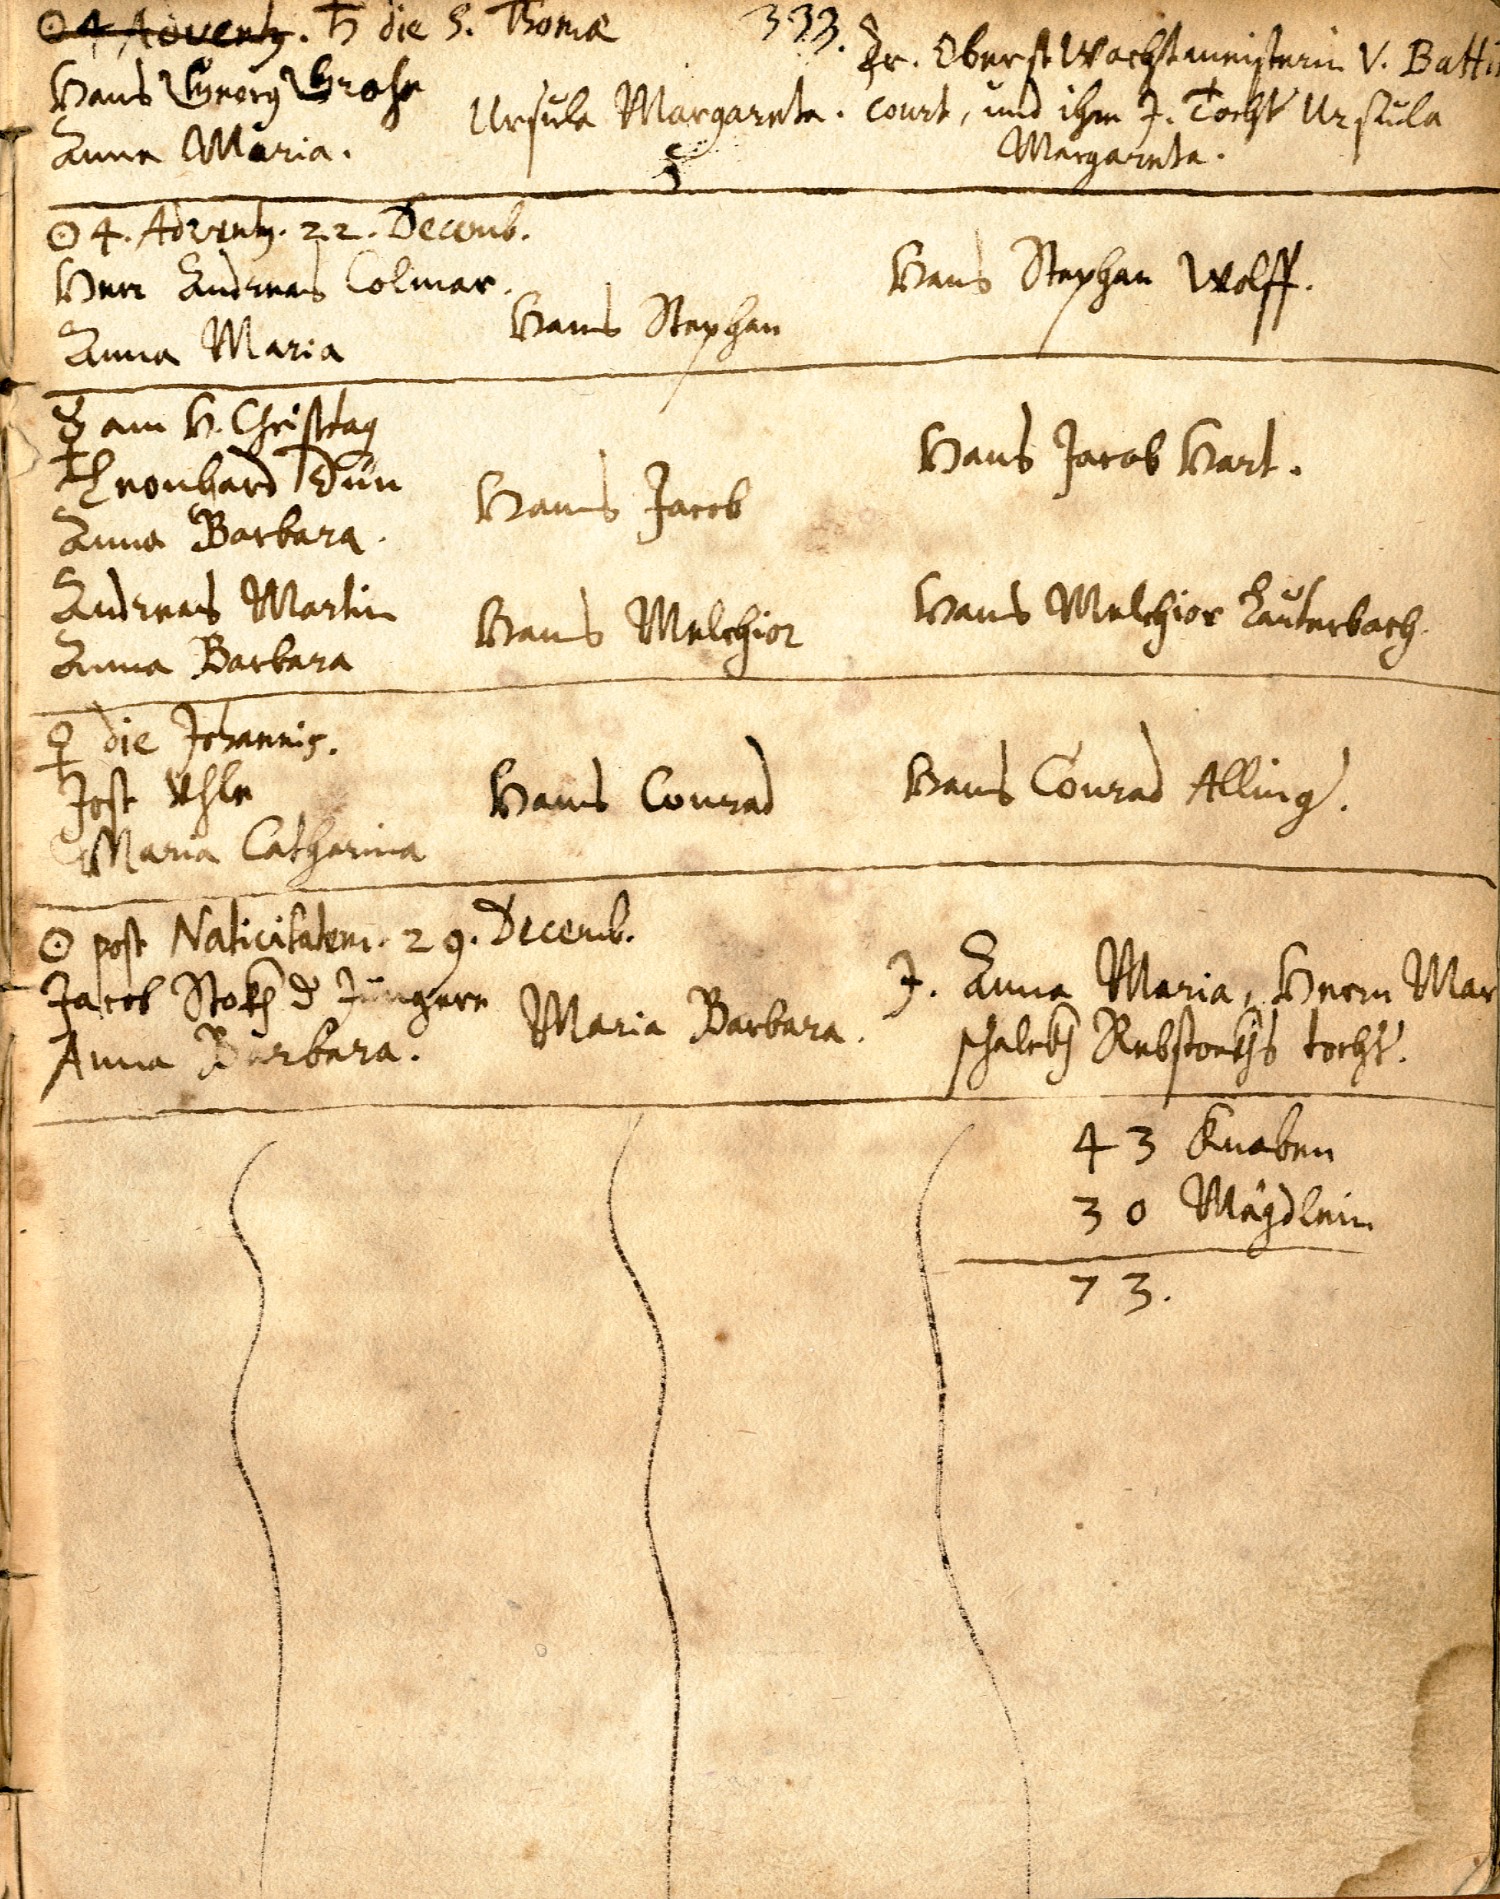 ☉ 4 Advents. ♄ die S. Thomæ
333.
Hans Georg Große
Anna Maria.
Ursula Margareta.
Fr. Oberst Wachtmeisterin V. Batti
court, und ihre J. Tocht Ursula
Margareta.
☉ 4. Advents. 22. Decemb.
Herr Andreas Colmar.
Anna Maria
Hans Stephan
Hans Stephan Wolff.
☿ am H. Christtag
Leonhard Dün
Anna Barbara.
Hans Jacob
Hans Jacob Hart.
Andreas Martin
Anna Barbara
Hans Melchior
Hans Melchior Lauterbach.
♀ die Johannis.
Jost Uhle
Maria Catharina
Hans Conrad
Hans Conrad Alling.
☉ post Nativitatem. 29. Decemb.
Jacob d Jüngere
Anna Barbara.
Maria Barbara.
J. Anna Maria, Herrn Mar
schalck Rebstocks tocht.
43 Knaben
30 Mägdlein
73.